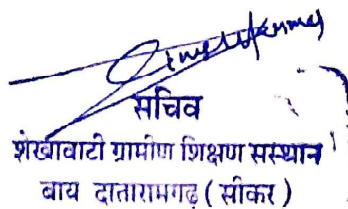 सचिव
शेखावाटी ग्रामीण शिक्षण संस्थान
बाय दातारामगढ़ (सीकर)